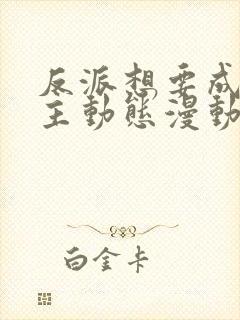 反派想要成
主動態漫動
白金卡